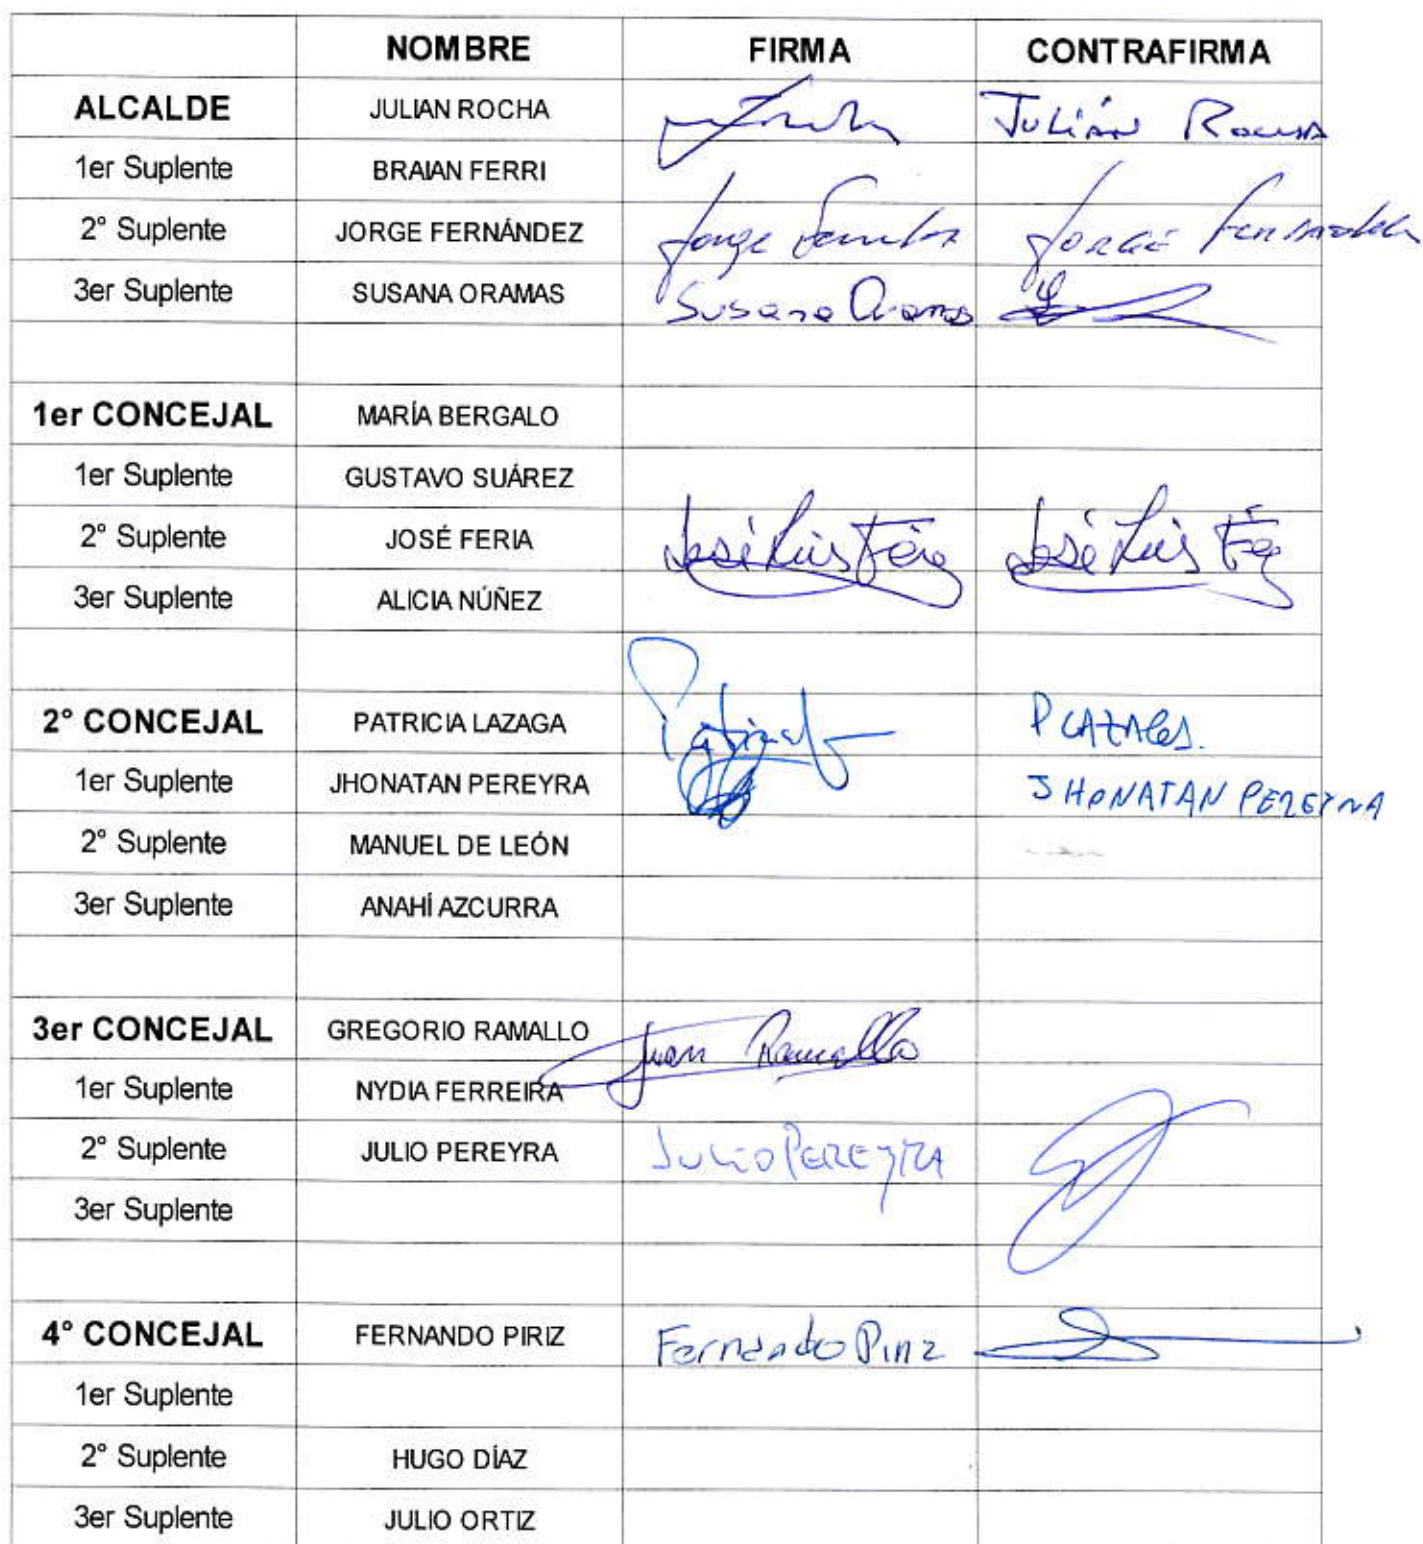 NOMBRE FIRMA CONTRAFIRMA
ALCALDE JULIAN ROCHA Julián Rocha
1er Suplente BRAIAN FERRI
2° Suplente JORGE FERNÁNDEZ Jorge JORGE Fernández
3er Suplente SUSANA ORAMAS Susana Oramas
1er CONCEJAL MARÍA BERGALO
1er Suplente GUSTAVO SUÁREZ
2° Suplente JOSÉ FERIA José Luis Feria José Luis
3er Suplente ALICIA NÚÑEZ
2° CONCEJAL PATRICIA LAZAGA
1er Suplente JHONATAN PEREYRA JHONATAN PEREYRA
2° Suplente MANUEL DE LEÓN
3er Suplente ANAHÍ AZCURRA
3er CONCEJAL GREGORIO RAMALLO Juan Ramallo
1er Suplente NYDIA FERREIRA
2° Suplente JULIO PEREYRA JULIO PEREYRA
3er Suplente
4° CONCEJAL FERNANDO PIRIZ Fernando Piriz
1er Suplente
2° Suplente HUGO DÍAZ
3er Suplente JULIO ORTIZ